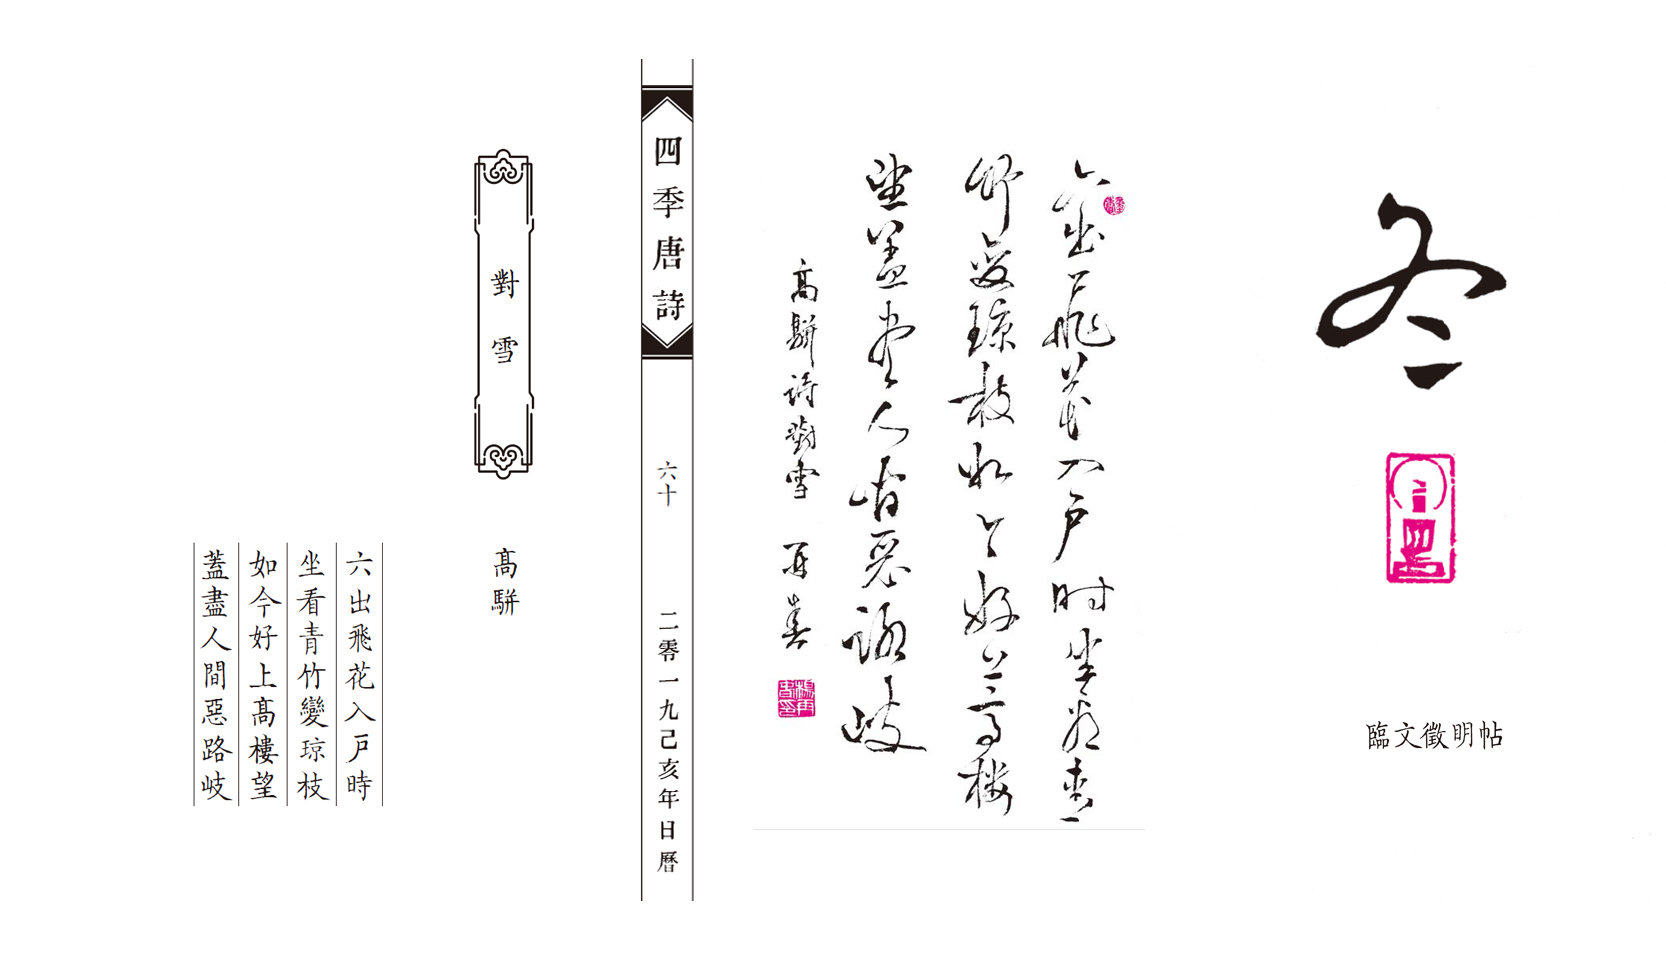 冬
臨文徵明帖
六出飛花入戶時坐看青
竹變琼枝如今好上高樓
望蓋盡人间惡路岐
高駢詩對雪 再春
四季唐詩
六十
二零一九己亥年日曆
對雪
高駢
六出飛花入戶時
坐看青竹變琼枝
如今好上高樓望
蓋盡人間惡路岐